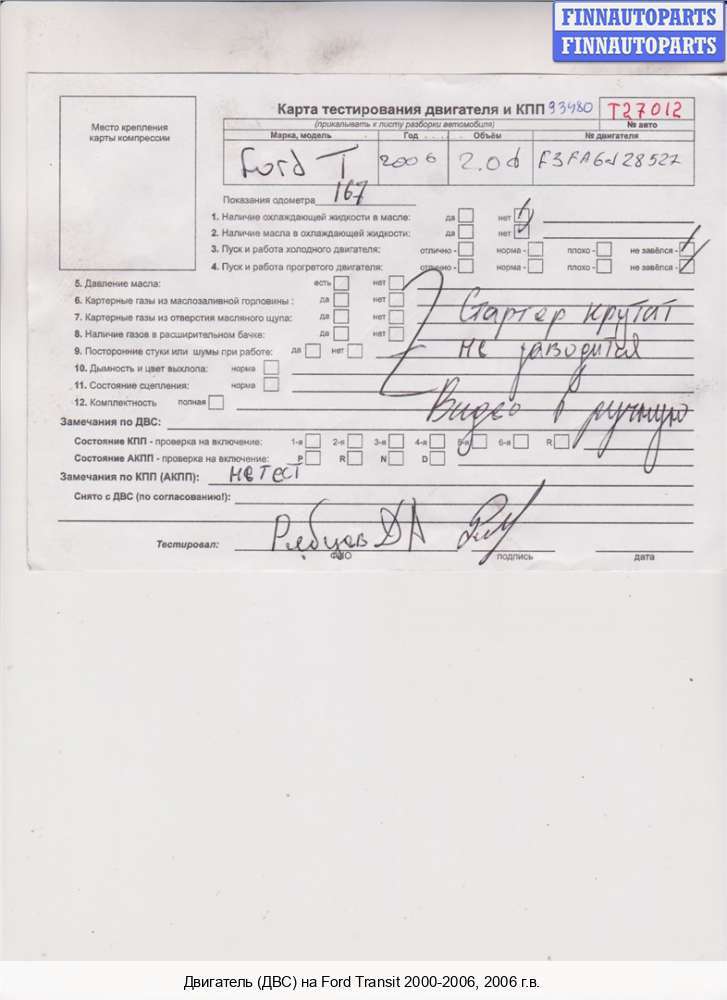 FINNAUTOPARTS
FINNAUTOPARTS
Место крепления
карты компрессии
Карта тестирования двигателя и КПП 93480 T27012
(прикалывать к листу разборки автомобиля) № авто
Марка, модель Год Объём № двигателя
Ford T 2006 2.0d
Показания одометра 167
1. Наличие охлаждающей жидкости в масле: да нет
2. Наличие масла в охлаждающей жидкости: да нет
3. Пуск и работа холодного двигателя: отлично - норма - плохо - не завёлся -
4. Пуск и работа прогретого двигателя: отлично - норма - плохо - не завёлся -
5. Давление масла: есть нет
6. Картерные газы из маслозаливной горловины : да нет
7. Картерные газы из отверстия масляного щупа: да нет
Стартер крутит
8. Наличие газов в расширительном бачке: да нет
9. Посторонние стуки или шумы при работе: да нет
не заводится
10. Дымность и цвет выхлопа: норма
11. Состояние сцепления: норма
12. Комплектность полная
Видео в ручную
Замечания по ДВС:
Состояние КПП - проверка на включение: 1-я 2-я 3-я 4-я 5-я 6-я R
Состояние АКПП - проверка на включение: P R N D
Замечания по КПП (АКПП): не тест
Снято с ДВС (по согласованию!):
Тестировал: Рябцев ДА
ФИО подпись дата
Двигатель (ДВС) на Ford Transit 2000-2006, 2006 г.в.